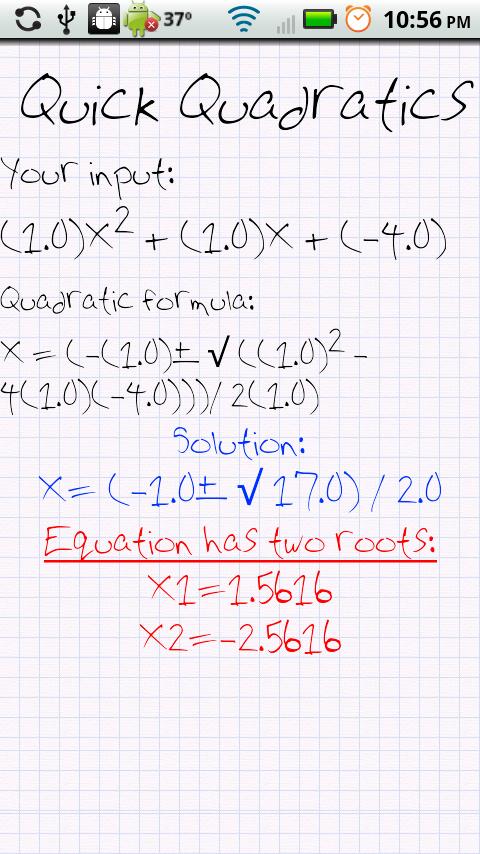 37° 10:56 PM
Quick Quadratics
Your input:
(1.0)x² + (1.0)x + (-4.0)
Quadratic formula:
x = (-(1.0)± √((1.0)² -
4(1.0)(-4.0)))/2(1.0)
Solution:
x= (-1.0± √17.0) / 2.0
Equation has two roots:
x1=1.5616
x2=-2.5616